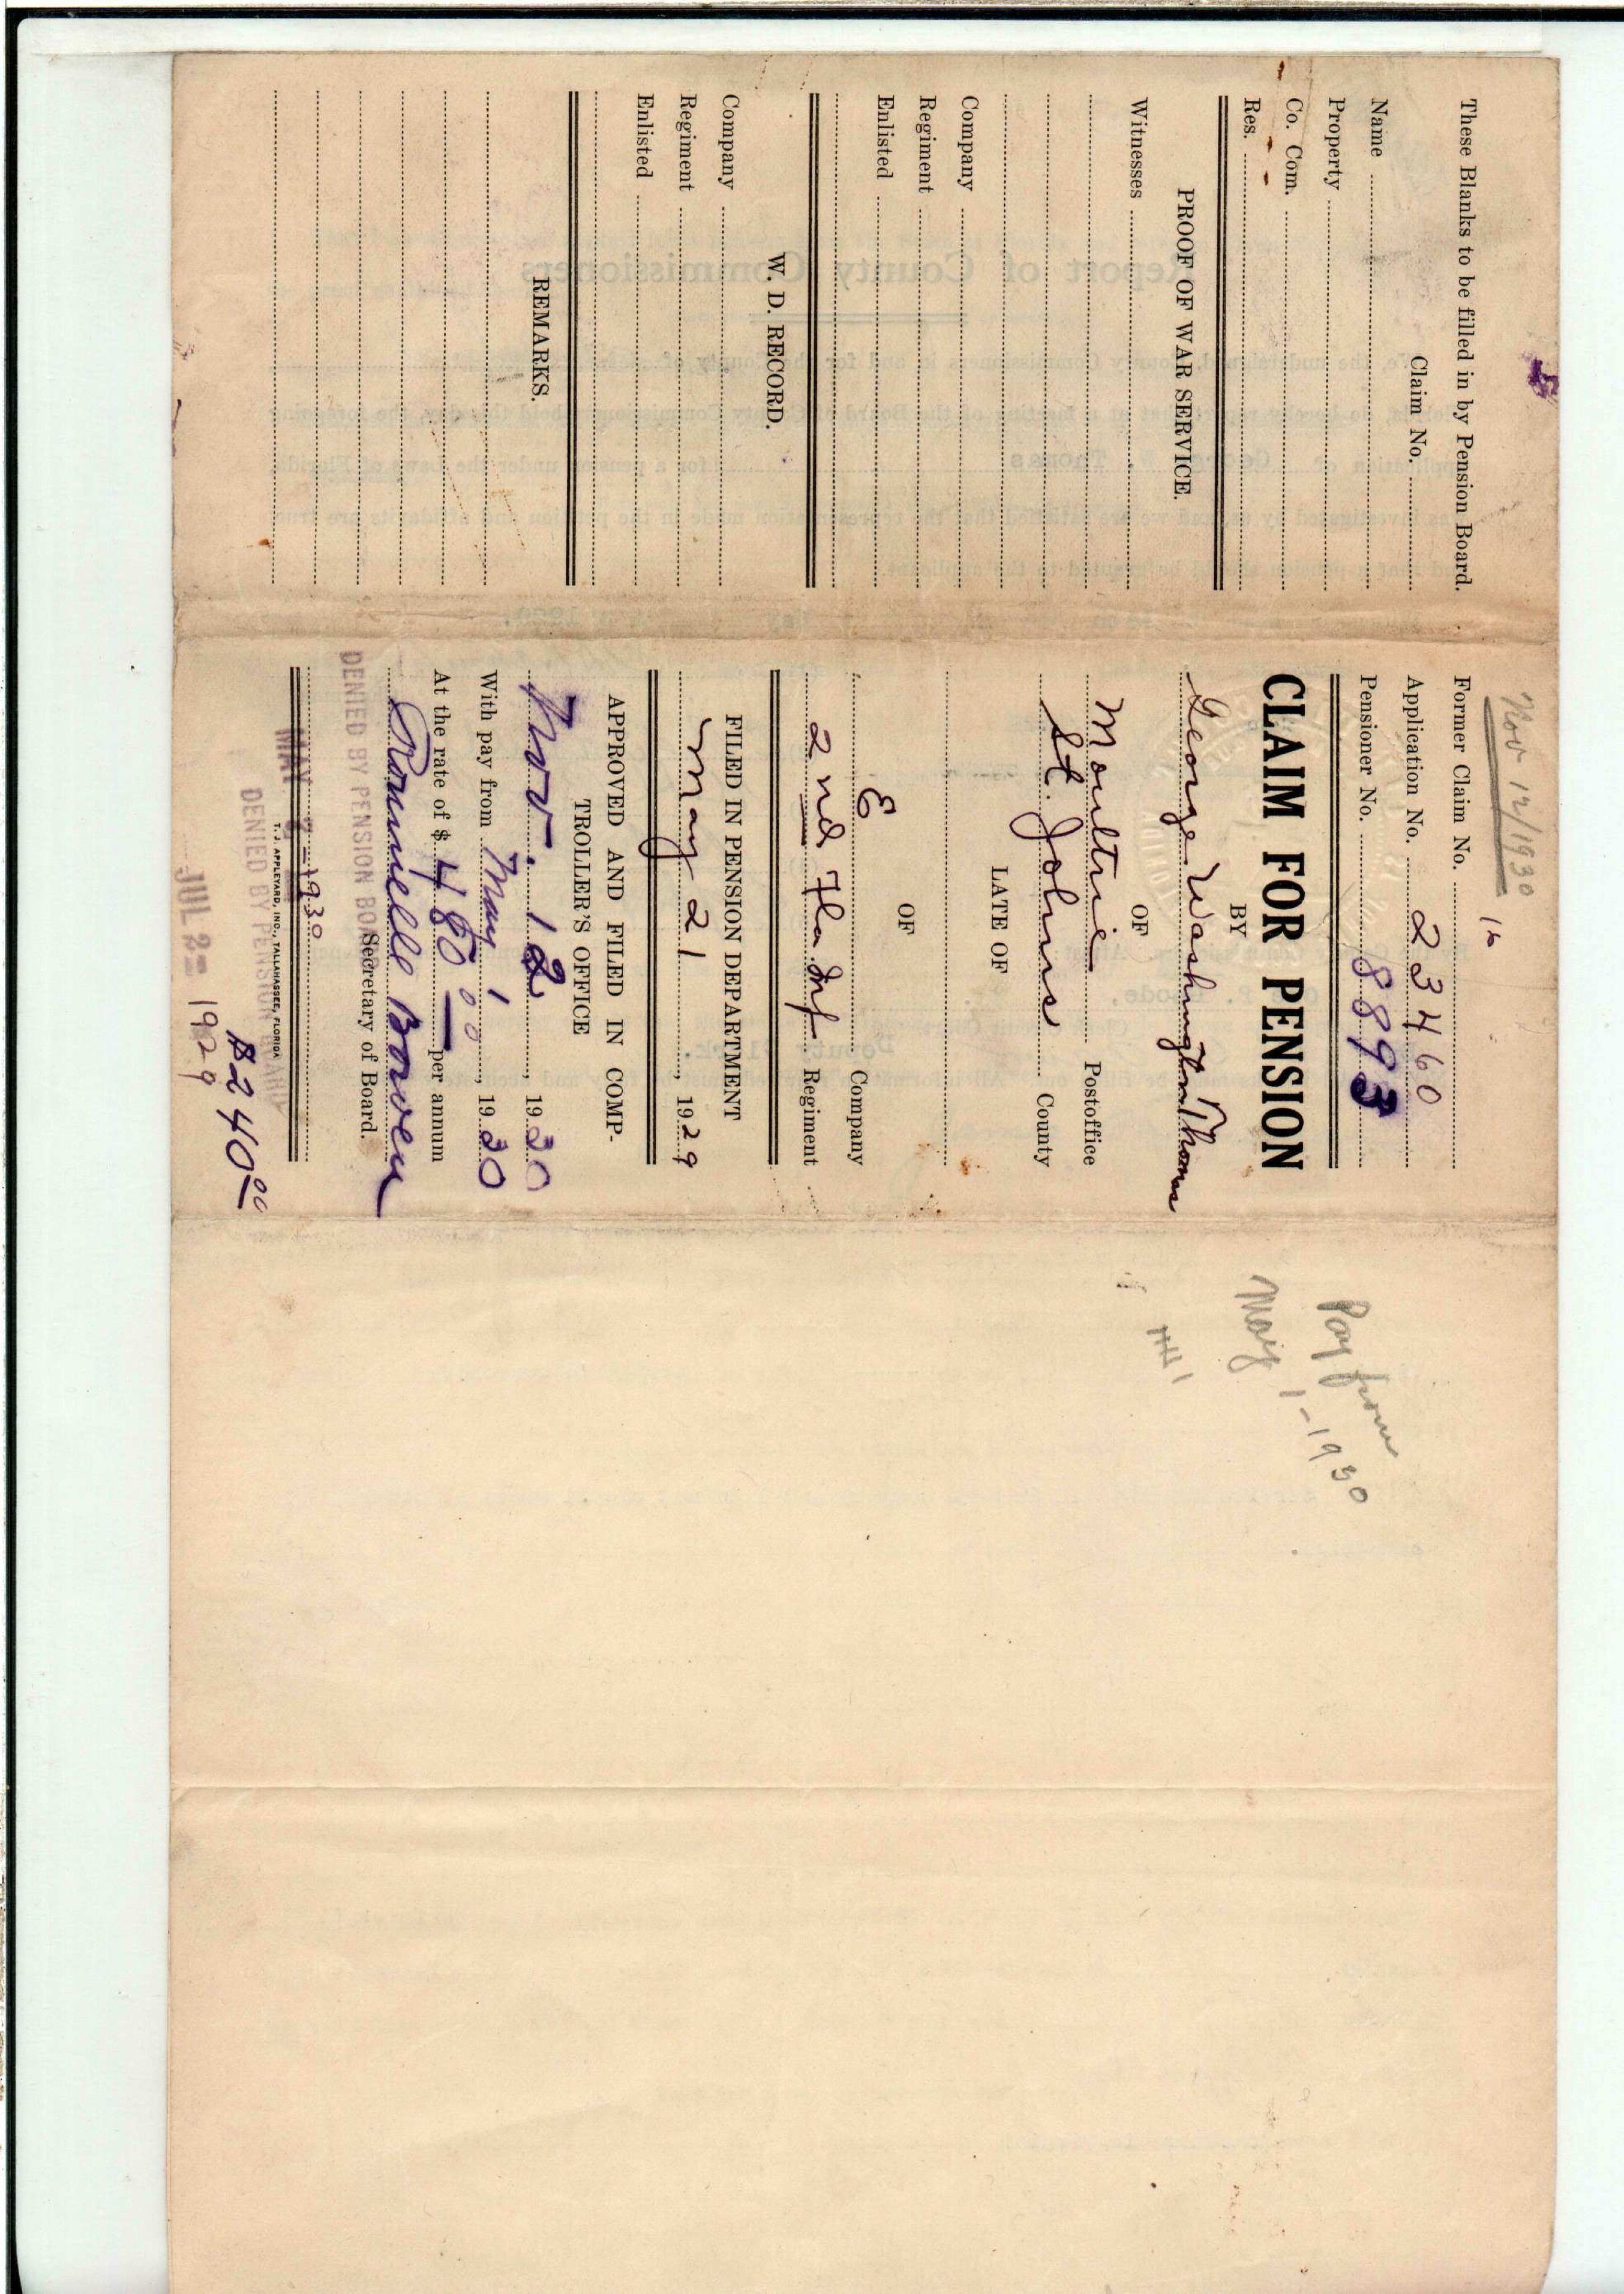 These Blanks to be filled in by Pension Board.
Claim No.
Name
Property
Co. Com.
Res.
PROOF OF WAR SERVICE.
Witnesses
Company
Regiment
Enlisted
W. D. RECORD.
Company
Regiment
Enlisted
REMARKS.
Nov 12/1930
Former Claim No.
Application No. 23460
Pensioner No. 8893
CLAIM FOR PENSION
BY
George Washington Thomas
OF
Moultrie Postoffice
St. Johns County
LATE OF
OF
E Company
2nd Fla Inf Regiment
FILED IN PENSION DEPARTMENT
May 21, 1929
APPROVED AND FILED IN COMP-
TROLLER'S OFFICE
Nov. 12, 1930
With pay from May 1, 1930
At the rate of $ 480.00 per annum
Ronnelle Bowen
Secretary of Board.
DENIED BY PENSION BOARD
MAY 2-1930
T. J. APPLEYARD, INC., TALLAHASSEE, FLORIDA
DENIED BY PENSION BOARD
$240.00
JUL 22 1929
Pay from
May 1-1930